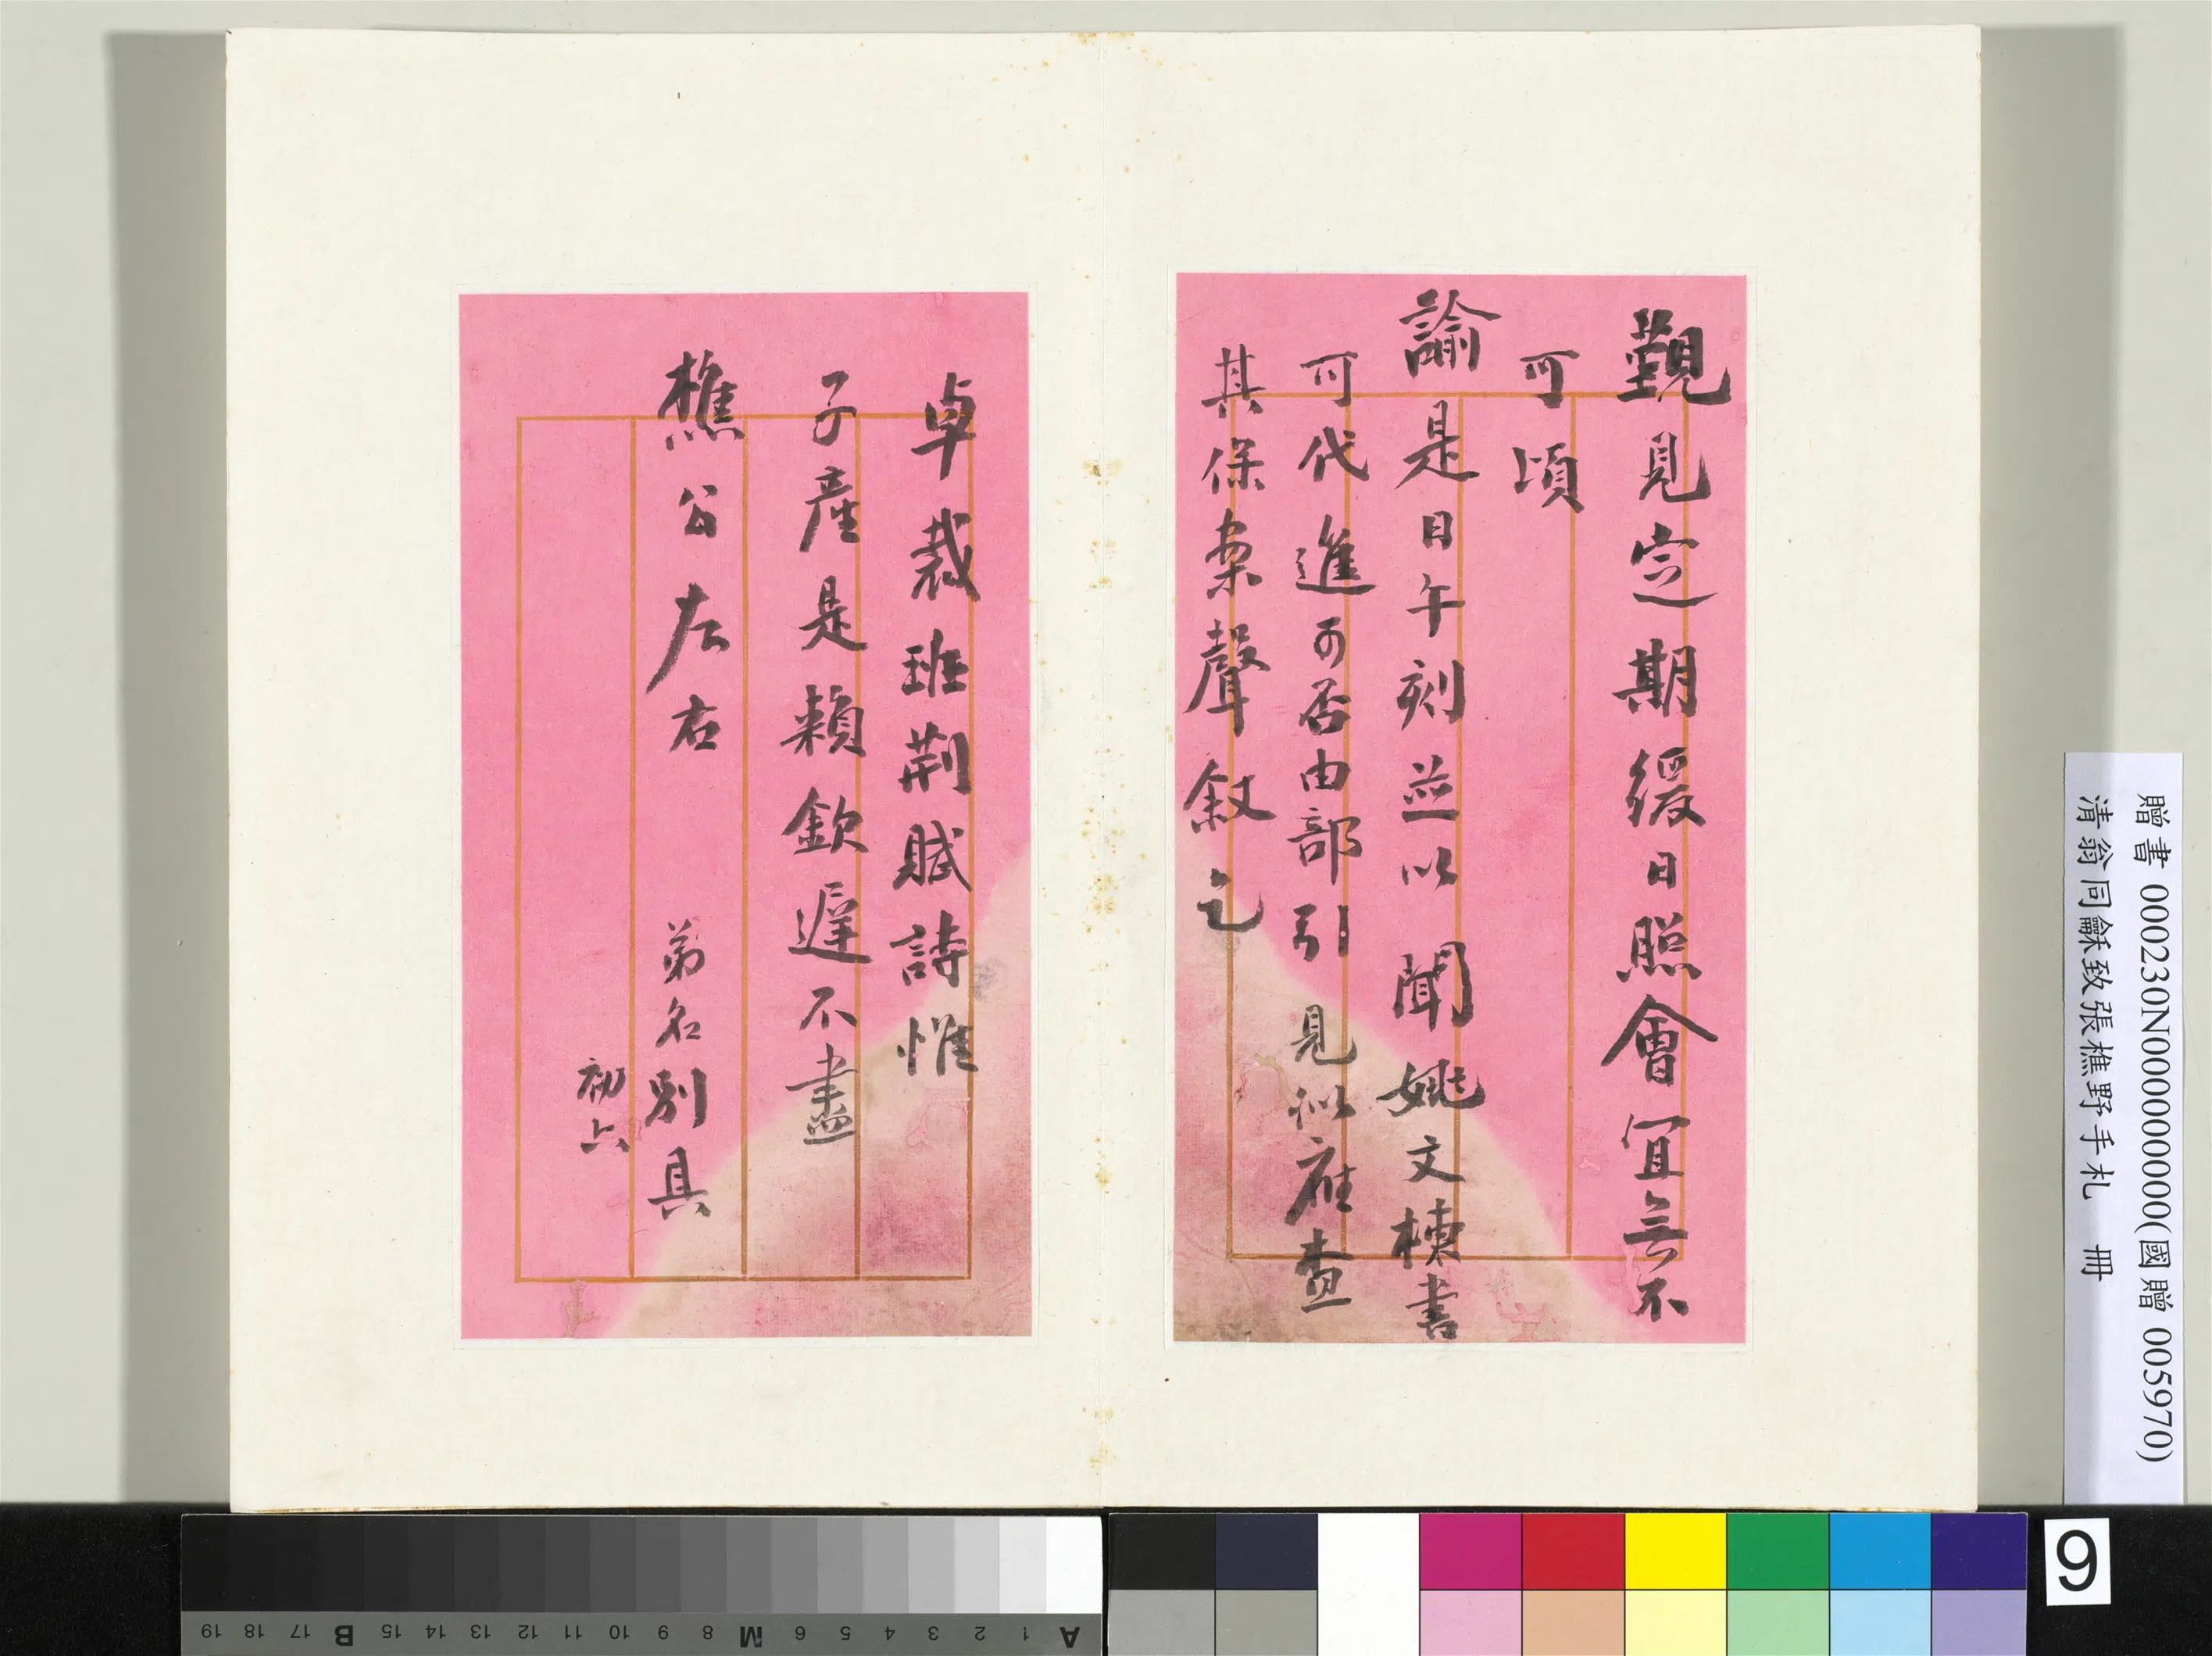 覲見定期緩日照會宜無不
可頃
諭是日午刻並以聞姚文棟書
可代進可否由部引見似應查
其保案聲敘乞
卓裁班荆賦詩惟
子產是賴欽遲不盡
樵公左右 弟名別具
初六
贈書 000230N000000000(國贈 005970)
清翁同龢致張樵野手札 冊
9
A 1 2 3 4 5 6 M 8 9 10 11 12 13 14 15 B 17 18 19